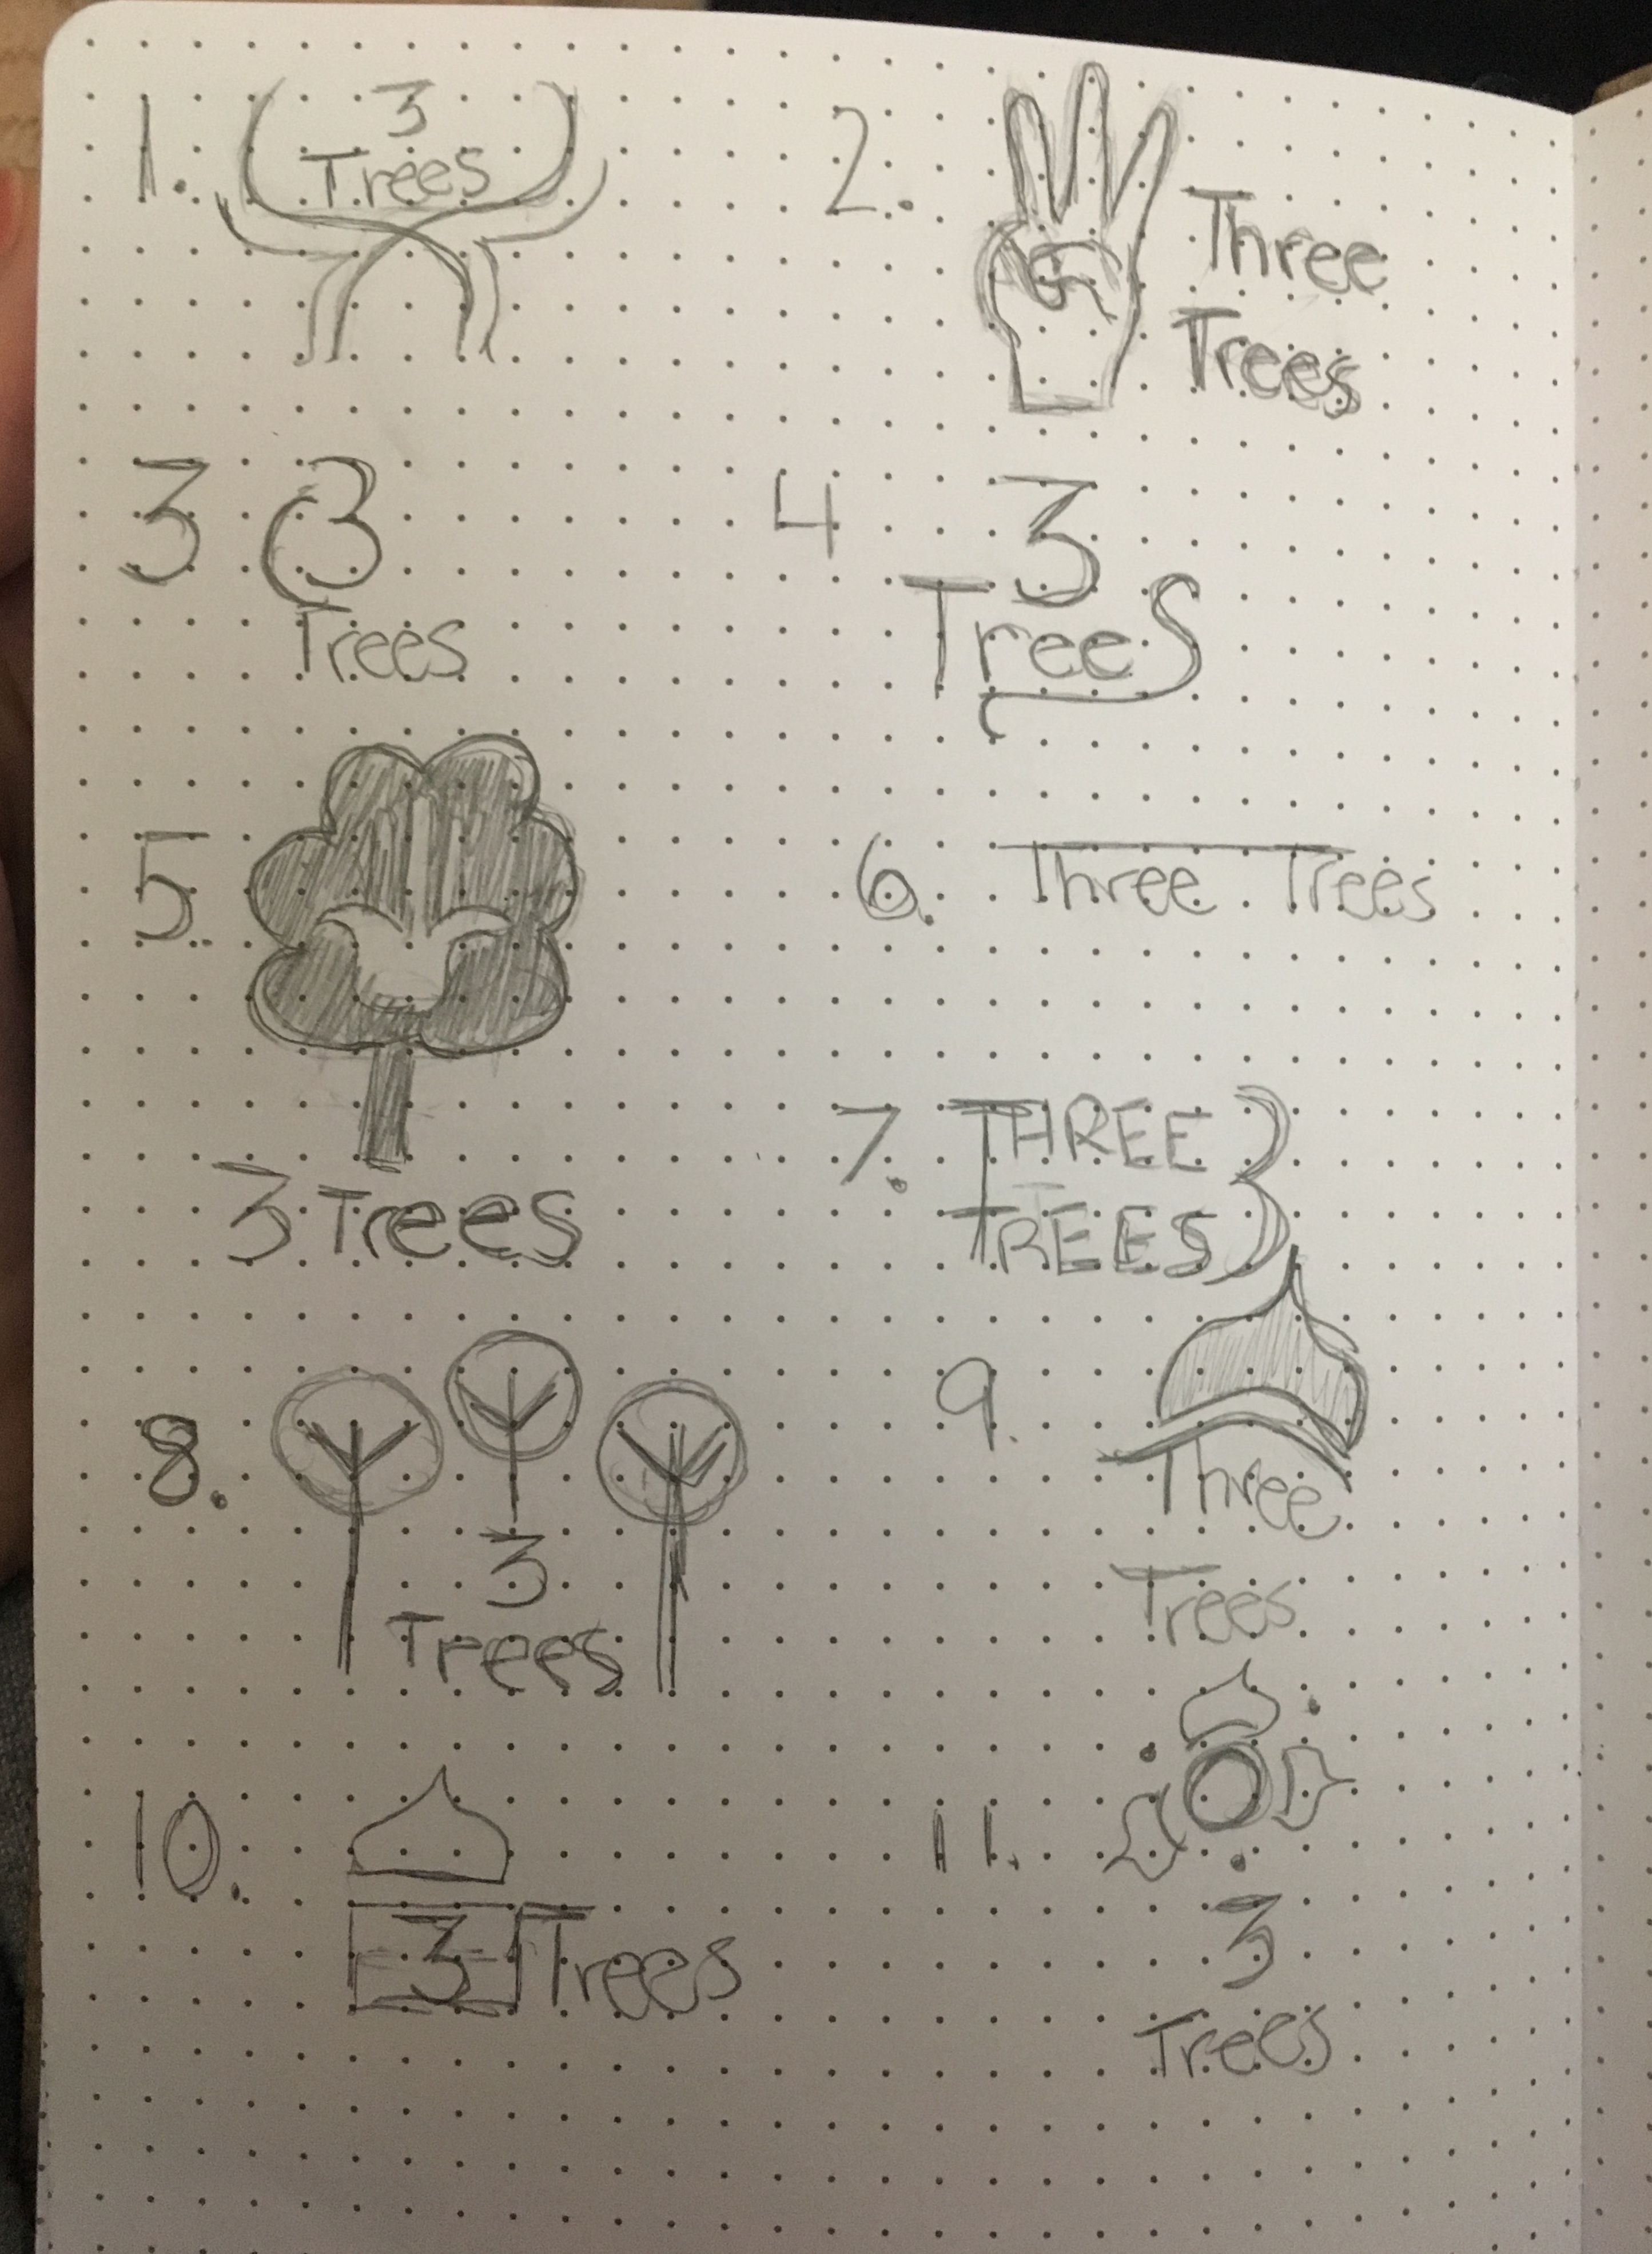 1. 3
Trees
2. Three
Trees
3 3
Trees
4 3
Trees
5.
3 Trees
6. Three Trees
7. THREE 3
TREES
8.
3
Trees
9.
Three
Trees
10.
3 Trees
11.
3
Trees